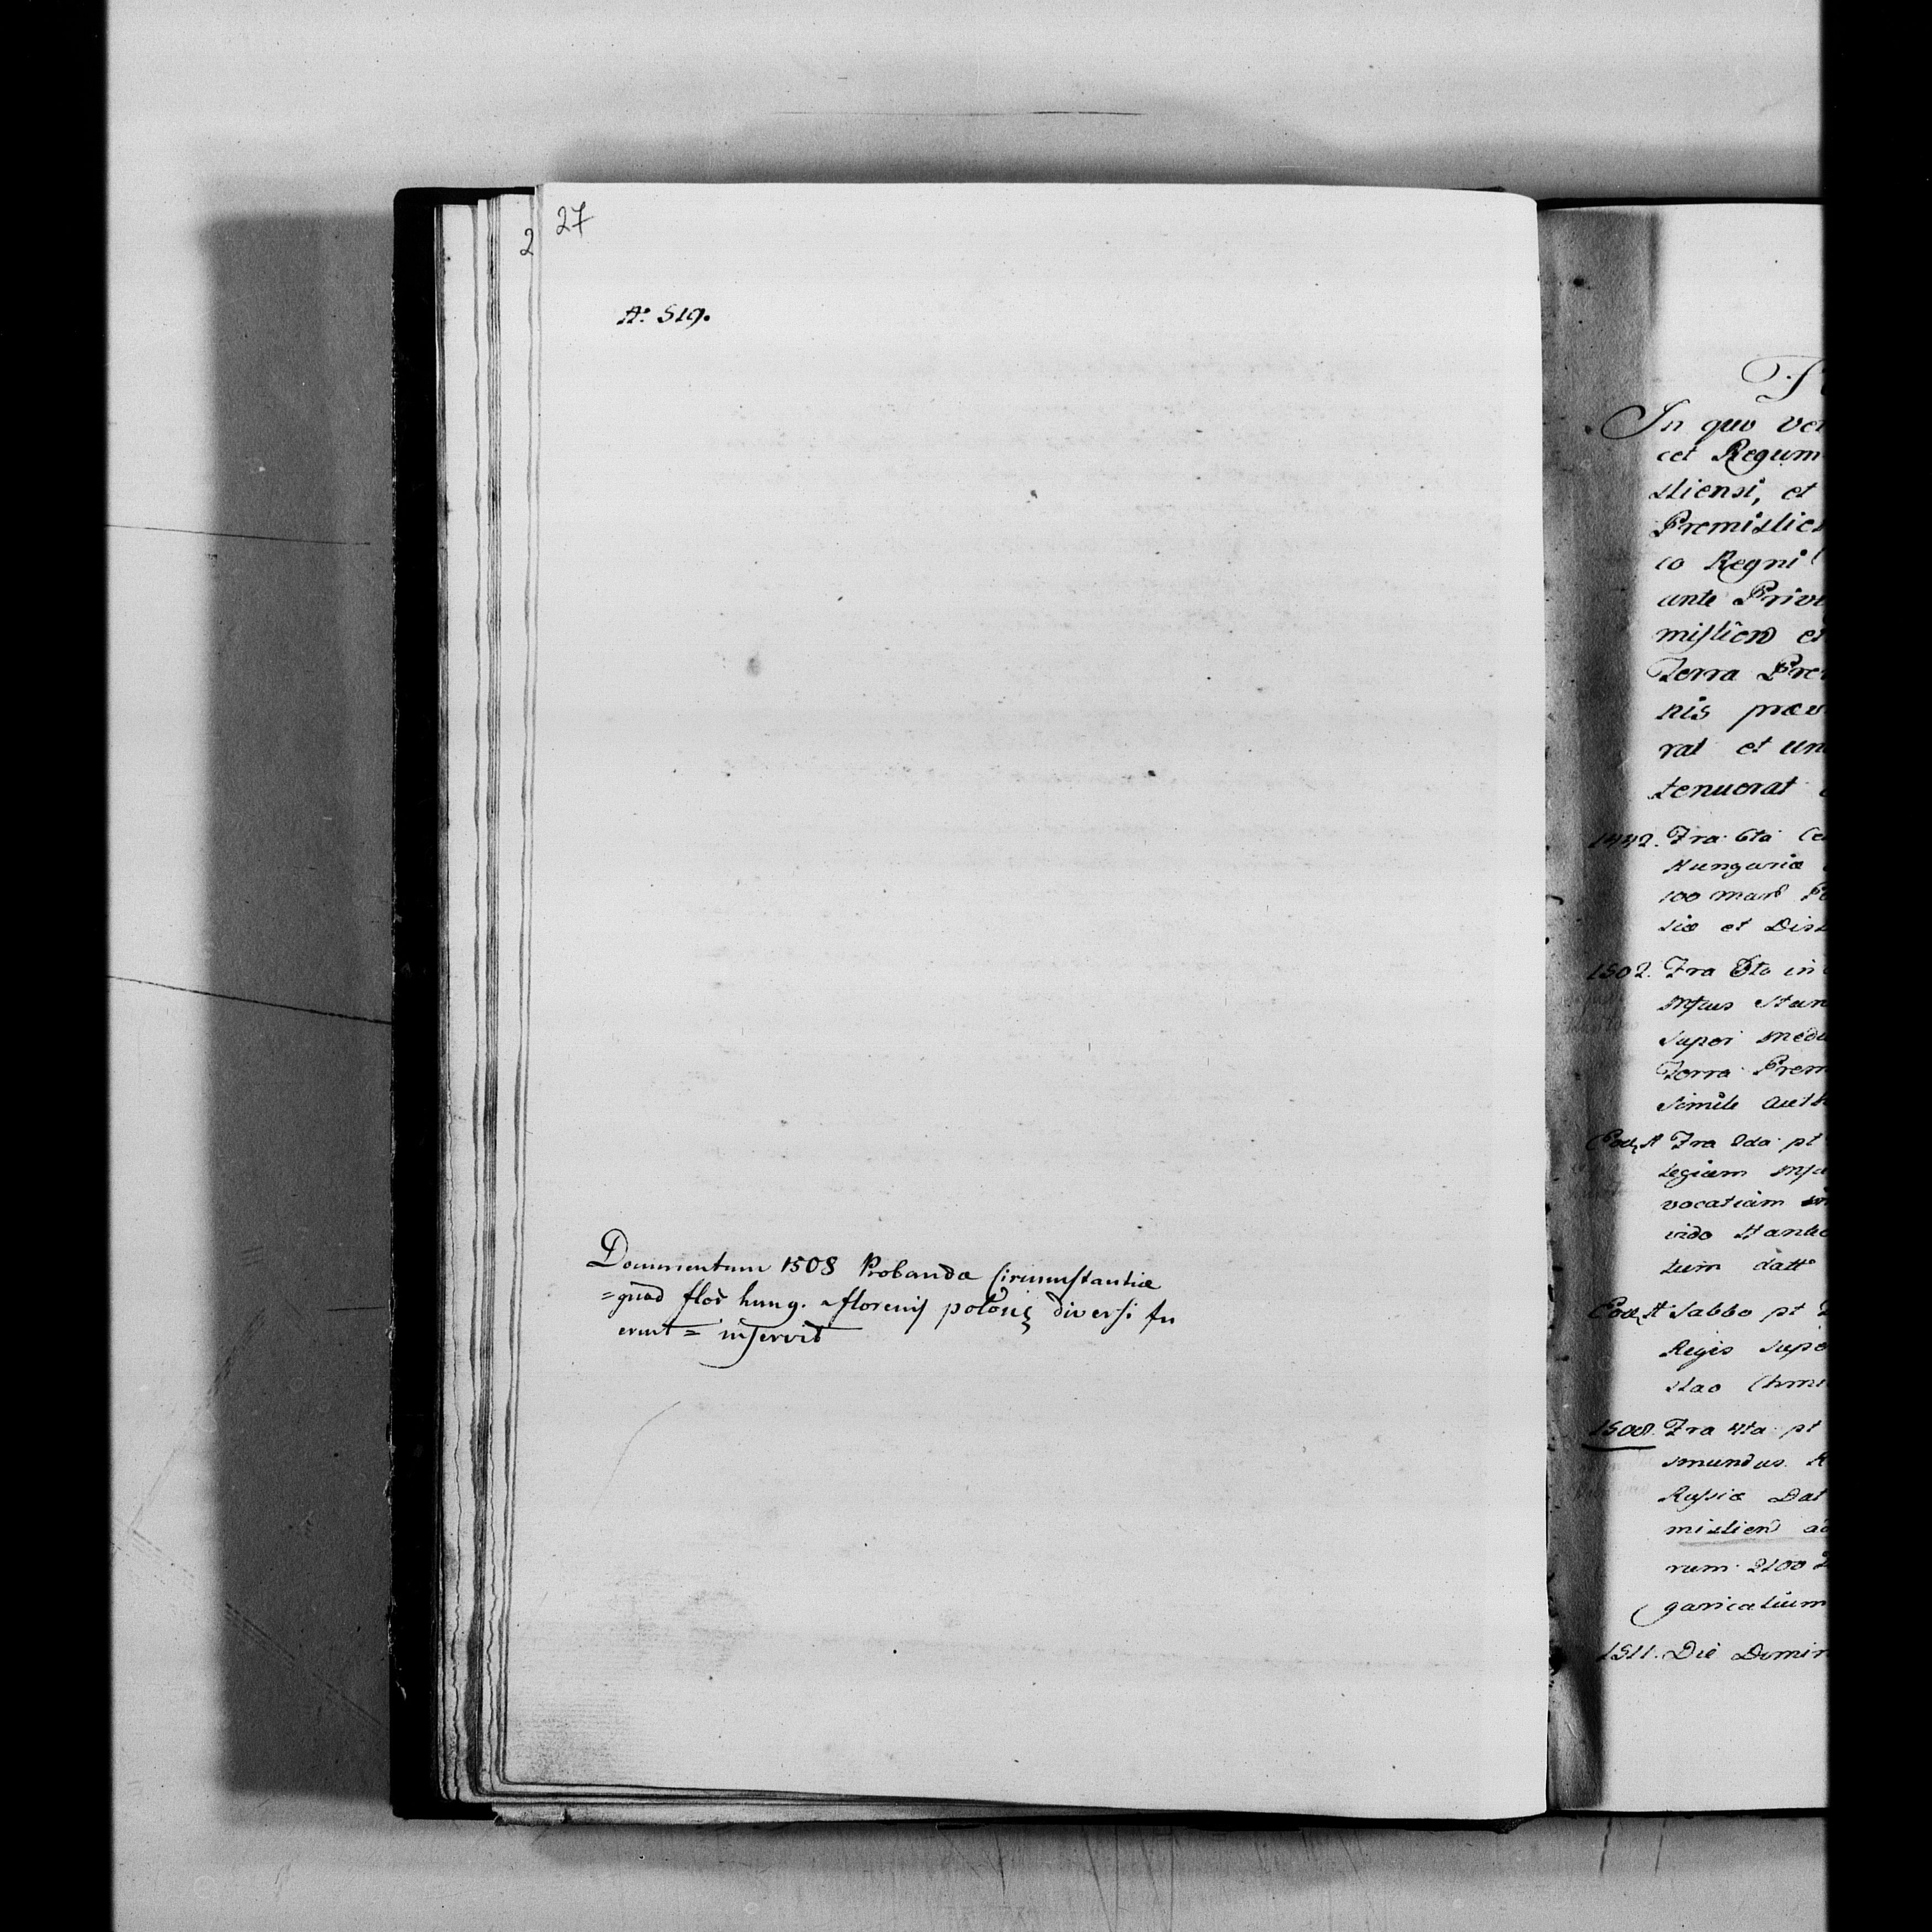 27
2
A: 519.
Documentum 1508 Probandæ Circumstantiæ
=quod flor hung. a florenis polonis diversi fu
erunt = inservit
In quo
cet Regum
sliensi, et
Premislien
co Regni
ante Priv
mislien et
Terra Pre
nis præv
rat et un
tenuerat
1442. Fra 6ta
Hungariæ
100 mar
siæ et Dist
1502. Fra 6ta in
Terra Prem
Simile auth
Eod A Fra 2da pt
legium
vocatiam
vido
tum datt
Eod A Sabbo pt
Regis supe
slao Chmi
1508. Fra 4ta pt
smundus R
Russiæ Dat
mislien ad
rum 2100
garicalium
1511. Die Domin